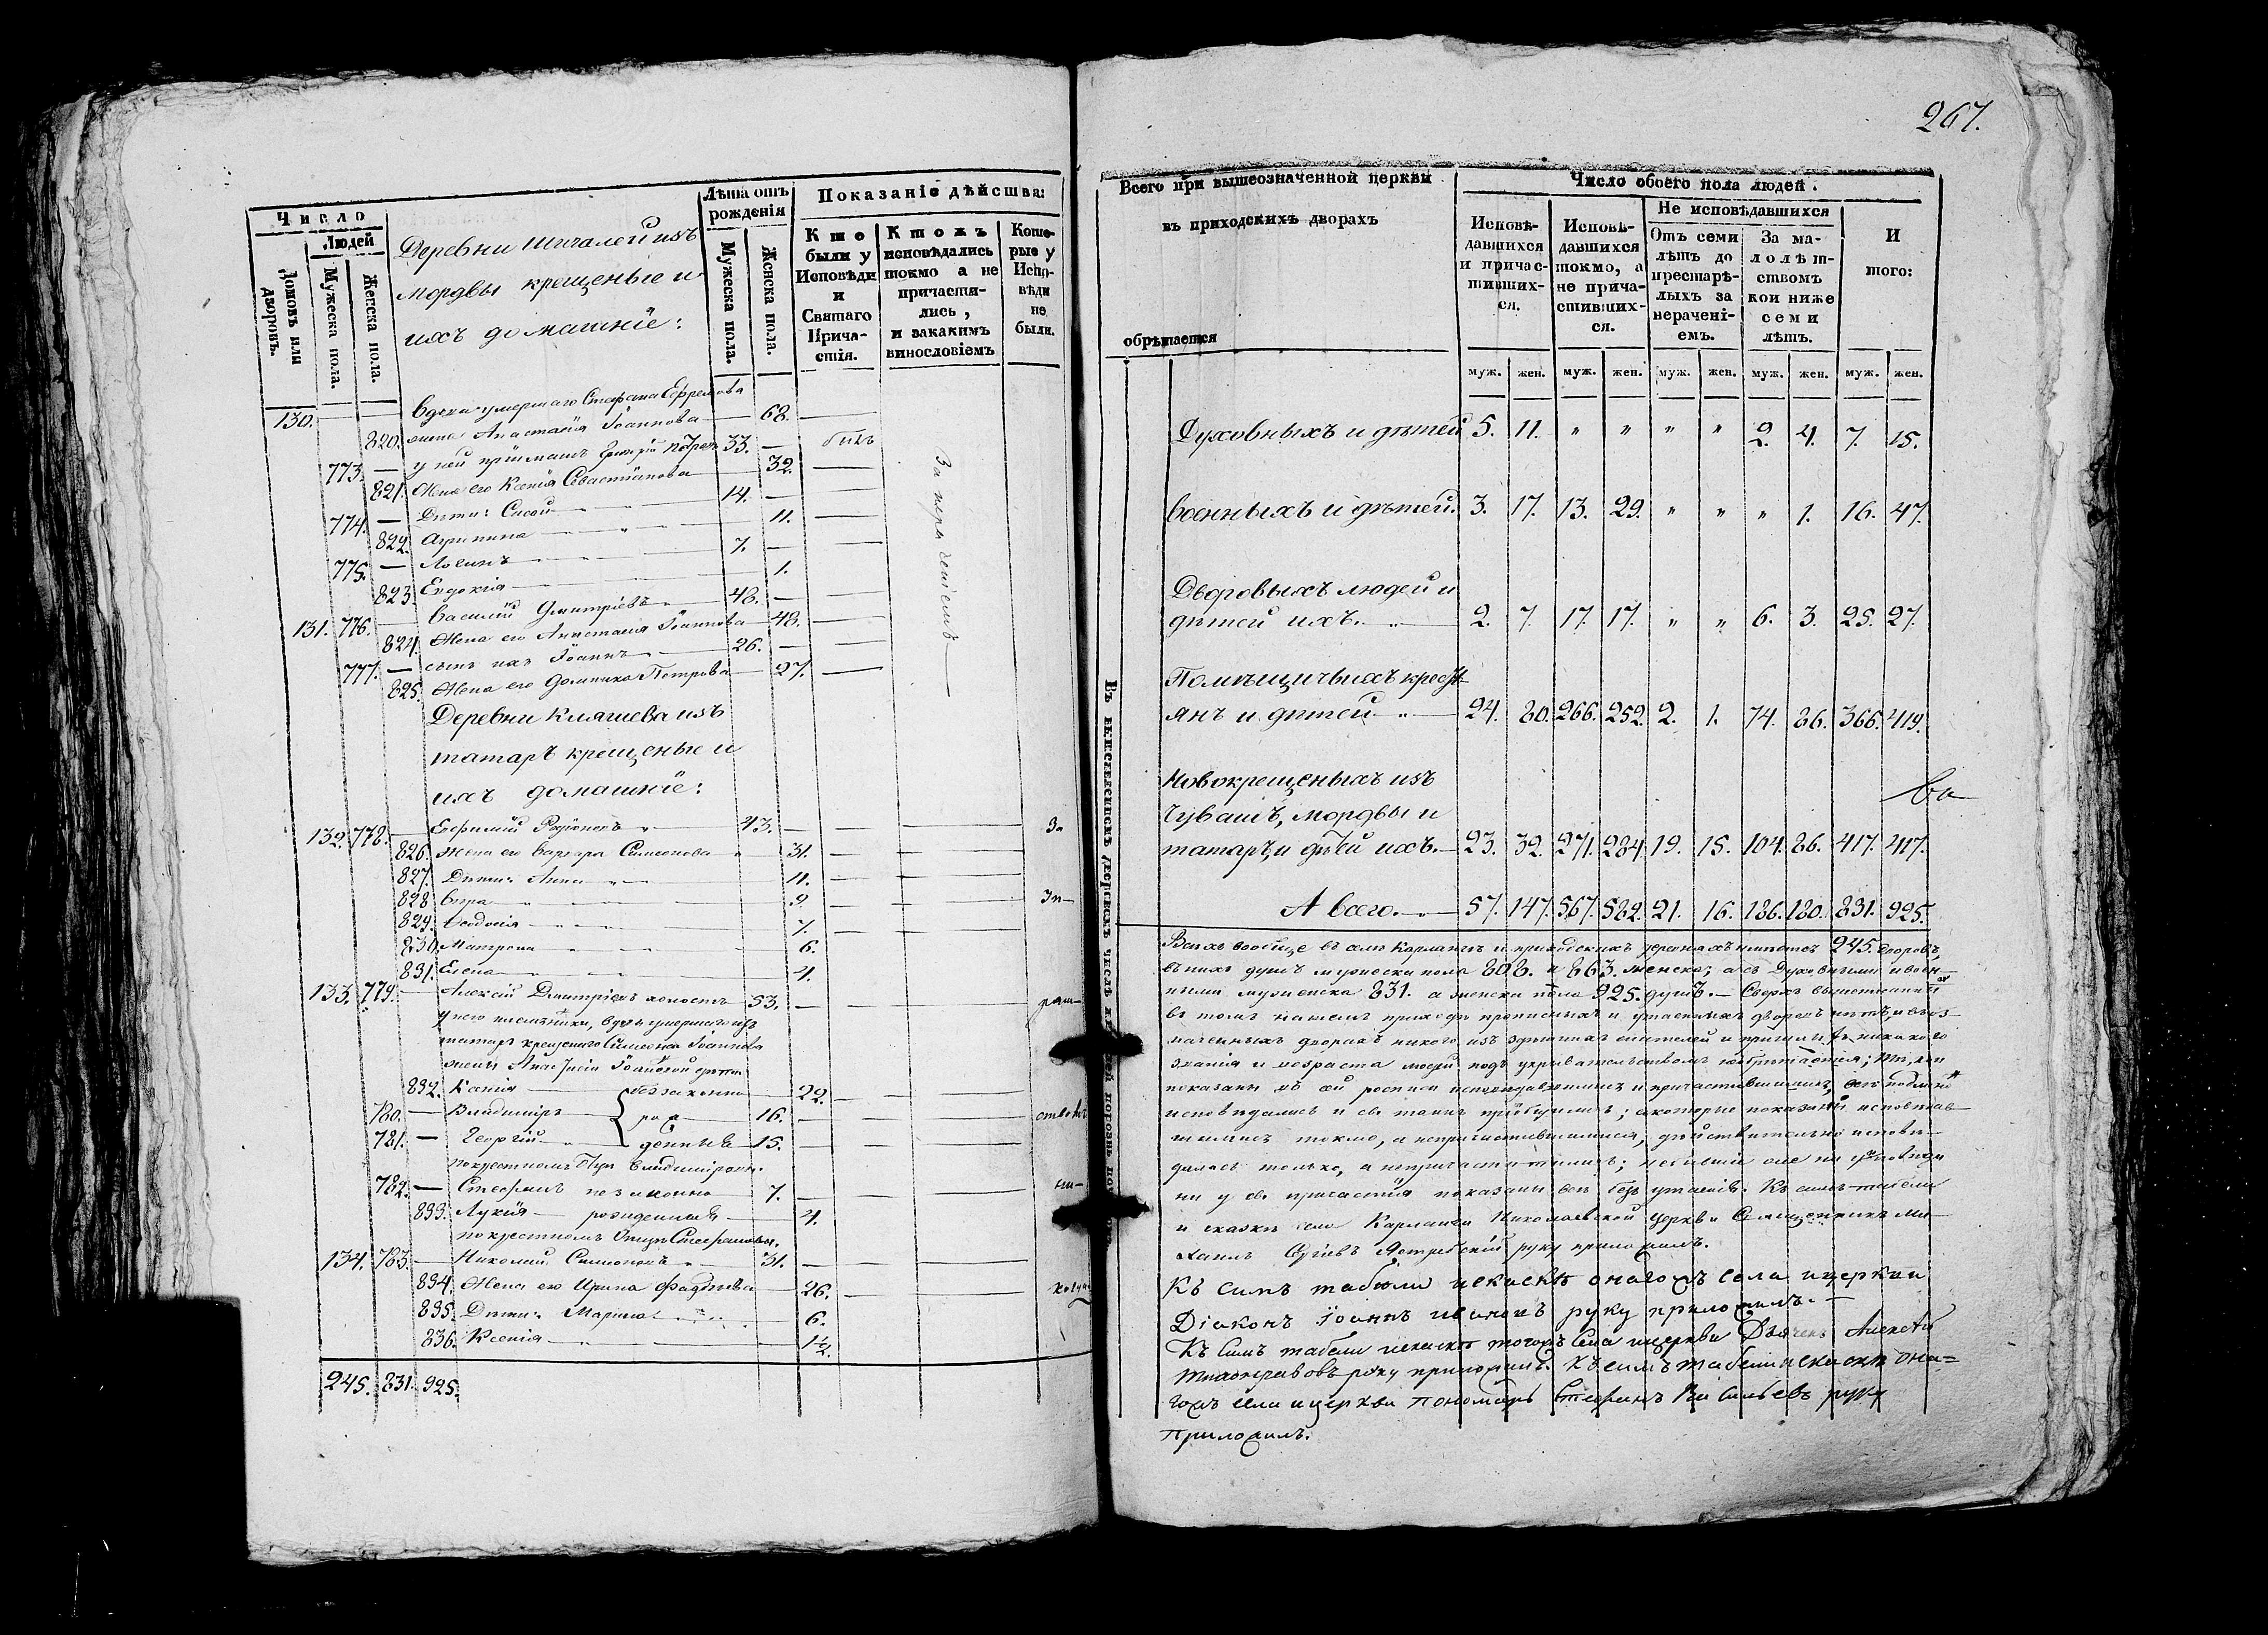 267.
Число
Людей
Домовъ или дворовъ.
Мужеска пола.
Женска пола.
Деревни Шигалей изъ
мордвы крещеные и
ихъ домашніе:
Лѣта отъ рожденія
Мужеска пола.
Женска пола.
Показаніе дѣйства:
Кто были у Исповѣди и Святаго Причастія.
Ктожъ исповѣдались токмо а не причастились, и закакимъ винословіемъ
Которые у Исповѣди не были.
130. вдова умершаго Стефана Ефремова
820. жена Анастасія Іоаннова 68.
773. у ней пріимашъ Григорій 33. былъ
821. Жена его Ксенія Севастіанова 32.
774. Дѣти: Сисой 14.
822. Агрипина 11.
775. Логинъ 7.
823. Евдокія 1.
131. 776. Василій Дмитріевъ 48.
824. Жена его Анастасія Іоаннова 48.
777. сынъ ихъ Іоаннъ 26.
825. Жена его Домника Петрова 27.
Деревни Кляшева изъ
татаръ крещеные и
ихъ домашніе:
132. 778. Ефимій Родіоновъ 43. За
826. жена его Варвара Симеонова 31.
827. Дѣти: Анна 11.
828. Вѣра 9. Зп—
829. Ѳеодосія 7.
830. Матрона 6.
831. Елена 4.
133. 779. Алексій Дмитріевъ холостъ 53.
у него племянники, вдовы умершаго изъ
татаръ крещенаго Симеона Іоаннова
жены Анастасіи Іоанновой дѣти
832. Ксенія незаконно 22.
780. Владиміръ рож 16. ство
781. Георгій денные 15.
по крестномъ Отцу Владиміровы.
782. Стефанъ незаконно 7.
833. Лукія рожденные 4.
по крестномъ Отцу Стефановы.
134. 783. Николай Симеоновъ 31.
834. Жена его Ирина Фадѣева 26.
835. Дѣти: Марина 6.
836. Ксенія 1½.
245. 831. 925.
Всего при вышеозначенной церкви
въ приходскихъ дворахъ
обрѣтается
Число обоего пола людей.
Исповѣдавшихся и причастившихся.
Исповѣдавшихся токмо, а не причастившихся.
Не исповѣдавшихся
Отъ семи лѣтъ до престарѣлыхъ за нераченіемъ.
За малолѣтствомъ кои ниже семи лѣтъ.
И того:
муж. жен. муж. жен. муж. жен. муж. жен. муж. жен.
Духовныхъ и дѣтей 5. 11. „ „ „ „ 2. 4. 7. 15.
Военныхъ и дѣтей. 3. 17. 13. 29. „ „ „ 1. 16. 47.
Дворовыхъ людей и
дѣтей ихъ. 2. 7. 17. 17. „ „ 6. 3. 25. 27.
Помѣщичьихъ кресть
янъ и дѣтей 24. 80. 266. 252. 2. 1. 74. 86. 366. 419.
Новокрещеныхъ изъ
Чувашъ, мордвы и
татаръ, и дѣтей ихъ. 23. 32. 271. 284. 19. 15. 104. 86. 417. 417.
А всего. 57. 147. 567. 582. 21. 16. 186. 180. 831. 925.
Всѣхъ вообще въ селѣ Карлангѣ и приходскихъ деревняхъ имѣется 245. дворовъ,
въ нихъ душъ мужеска пола 808. и 863. женска; а съ Духовными и воен-
ными мужеска 831. а женска пола 925. душъ.— Сверхъ вышеписанныхъ
въ томъ нашемъ приходѣ прописныхъ и утаенныхъ дворовъ нѣтъ, и въ оз-
наченныхъ дворахъ никого изъ здѣшнихъ жителей и пришлыхъ никакого
званія и возраста людей подъ укрывательствомъ не обрѣтается; Тѣ, кои
показаны въ сей росписи исповѣдавшимися и причастившимися, всѣ подлинно
исповѣдались и св. таинъ пріобщились; а которые показаны исповѣдав-
шимись токмо, а непричастившимися, дѣйствительно исповѣ-
дались только, а непричастились; небывшіе же ни у исповѣди
ни у св. причастія показаны всѣ безъ утаенія. Къ симъ табели
и сказкѣ села Карланги Николаевской церкви Священникъ Ми-
хаилъ Сергіевъ Ястребскій руку приложилъ.
Къ симъ табели и сказкѣ онагожъ села и церкви
Діаконъ Іоаннъ Ивановъ руку приложилъ.
Къ симъ табели и сказкѣ тогожъ Села и церкви Дьячекъ Алексѣй
Тихонравовъ руку приложилъ. Къ симъ табели и сказкѣ она=
гожъ села и церкви Пономарь Стефанъ Васильевъ руку
приложилъ.